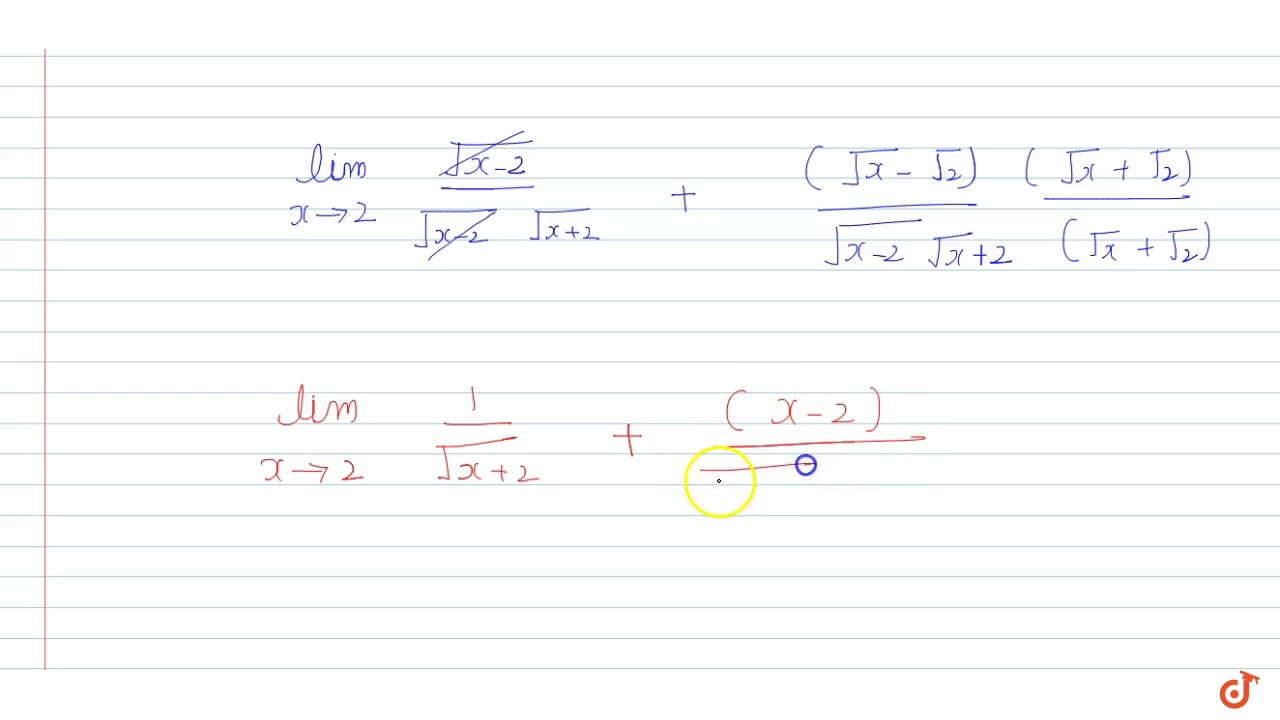 lim x→2 √(x-2) / (√(x-2) √(x+2)) + (√x - √2) (√x + √2) / (√(x-2) √x+2 (√x + √2))
lim x→2 1 / √(x+2) + (x-2)